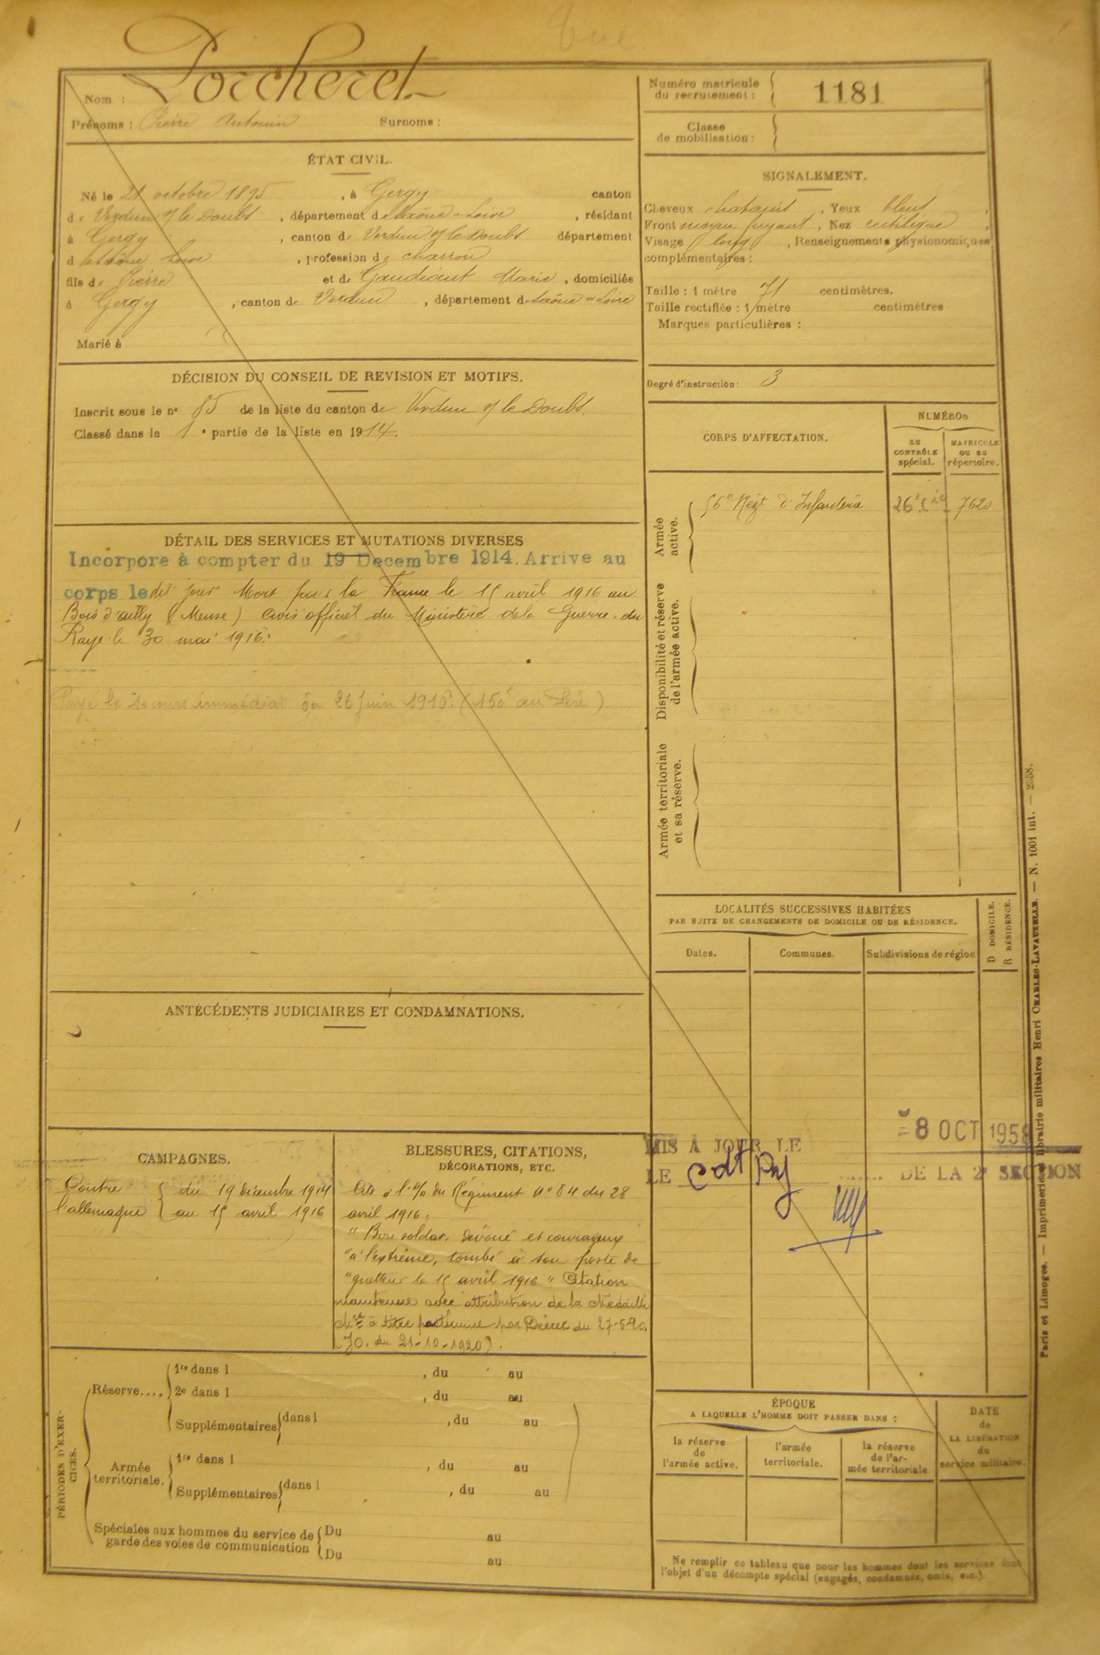 Nom : Porcheret
Prénoms : Pierre Antonin Surnoms :
Numéro matricule du recrutement : 1181
Classe de mobilisation :
ÉTAT CIVIL.
Né le 21 octobre 1895, à Gergy canton
de Verdun s/ le Doubs, département de Saône-Loire, résidant
à Gergy, canton de Verdun s/ le Doubs département
d Saône Loire, profession de charron
fils de Pierre et de Marie, domiciliés
à Gergy, canton de Verdun, département de Saône-Loire
Marié à
SIGNALEMENT.
Cheveux chatains, Yeux bleus,
Front moyen fuyant, Nez rectiligne,
Visage long, Renseignements physionomiques
complémentaires :
Taille : 1 mètre 71 centimètres.
Taille rectifiée : 1 mètre centimètres
Marques particulières :
Degré d'instruction : 3
DÉCISION DU CONSEIL DE REVISION ET MOTIFS.
Inscrit sous le nº 85 de la liste du canton de Verdun s/ le Doubs
Classé dans la 1e partie de la liste en 1914.
CORPS D'AFFECTATION.
NUMÉROS
DU CONTRÔLE spécial.
MATRICULE OU DU répertoire.
Armée active.
56e Regt d'Infanterie 26e Cie 7620
Disponibilité et réserve de l'armée active.
Armée territoriale et sa réserve.
DÉTAIL DES SERVICES ET MUTATIONS DIVERSES
Incorporé à compter du 19 Decembre 1914. Arrivé au
corps le dit jour Mort pour la France le 15 avril 1916 au
Bois d'ailly (Meuse) avis officiel du Ministère de la Guerre du
Rayé le 30 mai 1916.
Payé le secours immédiat 26 juin 1916. (150f au Père)
LOCALITÉS SUCCESSIVES HABITÉES
PAR SUITE DE CHANGEMENTS DE DOMICILE OU DE RÉSIDENCE.
Dates. Communes. Subdivisions de région
D DOMICILE.
R RÉSIDENCE.
ANTÉCÉDENTS JUDICIAIRES ET CONDAMNATIONS.
CAMPAGNES.
Contre l'allemagne
du 19 décembre 1914
au 15 avril 1916
BLESSURES, CITATIONS,
DÉCORATIONS, ETC.
Cité à l'o/ du Régiment nº 84 du 28
avril 1916.
" Bon soldat dévoué et courageux
" à l'extrême, tombé à son poste de
" guetteur le 15 avril 1916 " Citation
maintenue avec attribution de la Médaille
Mre à titre posthume par Décret du
(JO. du 21-10-1920).
MIS À JOUR LE = 8 OCT 1958
LE cdt DE LA 2e SECTION
PÉRIODES D'EXERCICES.
Réserve....
1re dans l , du au
2e dans l , du au
Supplémentaires dans l , du au
Armée territoriale.
1re dans l , du au
Supplémentaires dans l , du au
Spéciales aux hommes du service de garde des voies de communication
Du au
Du au
ÉPOQUE
A LAQUELLE L'HOMME DOIT PASSER DANS :
la réserve de l'armée active.
l'armée territoriale.
la réserve de l'armée territoriale
DATE de LA LIBÉRATION du service militaire.
Ne remplir ce tableau que pour les hommes dont les services font
l'objet d'un décompte spécial (engagés, condamnés, omis, etc.)
Paris et Limoges. — Imprimerie librairie militaires Henri CHARLES-LAVAUZELLE. — N. 1001 int. —